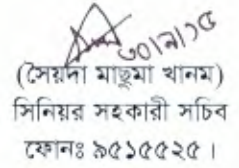 ৩০/৯/১৫
(সৈয়দা মাছুমা খানম)
সিনিয়র সহকারী সচিব
ফোনঃ ৯৫১৫৫২৫।